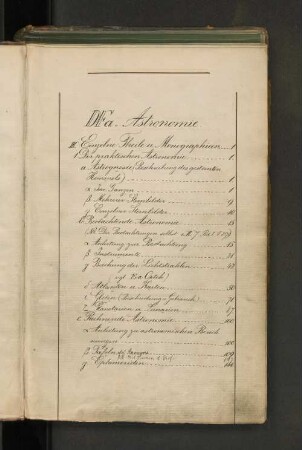 DFa. Astronomie
III. Einzelne Theile u. Monographieen. 1
1. Der praktischen Astronomie 1.
a. Astrognosie (Beschreibung des gestirnten
Himmels) 1
α. Im Ganzen 1
β. Mehrerer Sternbilder 9
γ. Einzelner Sternbilder 10
b. Beobachtende Astronomie 15
(NB. Die Beobachtungen selbst
α. Anleitung zur Beobachtung 15
β. Instrumente
γ. Brechung der Lichtstrahlen
vgl.
Atlanten u. Karten 50
Globen (Beschreibung u. Gebrauch) 71
c. Rechnende Astronomie 100
α. Anleitung zu astronomischen Berech
nungen 100
β. Tafeln, im Ganzen
γ. Ephemeriden